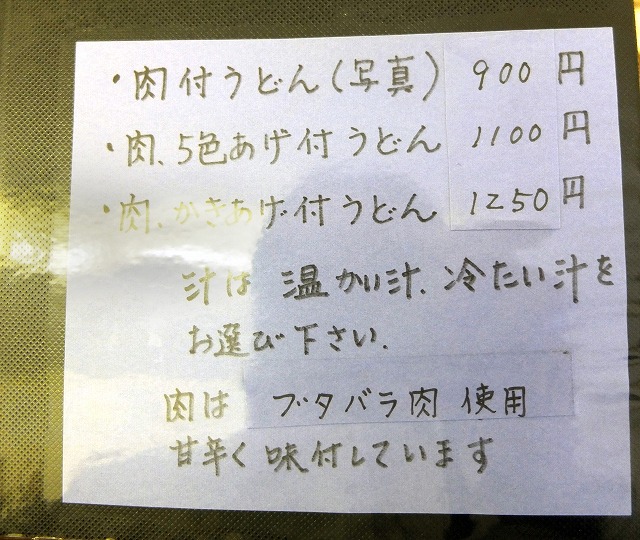 ・肉付うどん(写真) 900円
・肉、5色あげ付うどん 1100円
・肉、かきあげ付うどん 1250円
汁は 温かい汁、冷たい汁を
お選び下さい.
肉は ブタバラ肉 使用
甘辛く味付しています